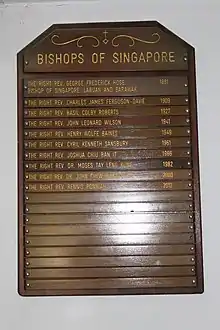 BISHOPS OF SINGAPORE
THE RIGHT REV. GEORGE FREDERICK HOSE 1881
BISHOP OF SINGAPORE, LABUAN AND SARAWAK
THE RIGHT REV. CHARLES JAMES FERGUSON-DAVIE 1909
THE RIGHT REV. BASIL COLBY ROBERTS 1927
THE RIGHT REV. JOHN LEONARD WILSON 1941
THE RIGHT REV. HENRY WOLFE BAINES 1949
THE RIGHT REV. CYRIL KENNETH SANSBURY 1961
THE RIGHT REV. JOSHUA CHIU BAN IT 1966
THE RIGHT REV. DR. MOSES TAY LENG KONG 1982
THE RIGHT REV. DR. JOHN CHEW 2000
THE RIGHT REV. RENNIS PONNIAH 2012